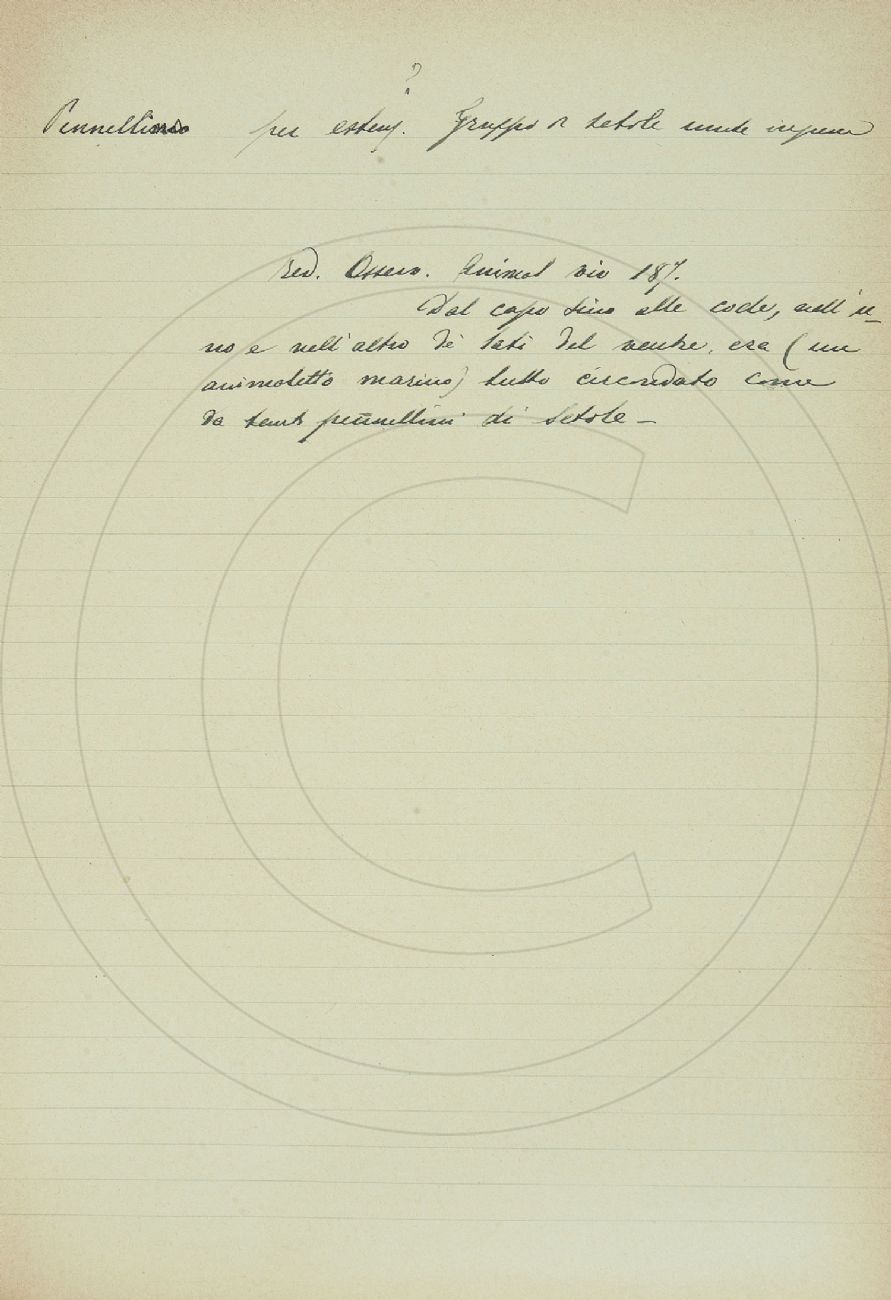 ?
Pennellino per estens. Gruppo di setole unite insieme
Red. Osserv. Animal viv 187.
Dal capo sino alle code, nell'u-
no e nell'altro de' lati del ventre, era (un
animaletto marino) tutto circondato come
da tanti pennellini di setole –